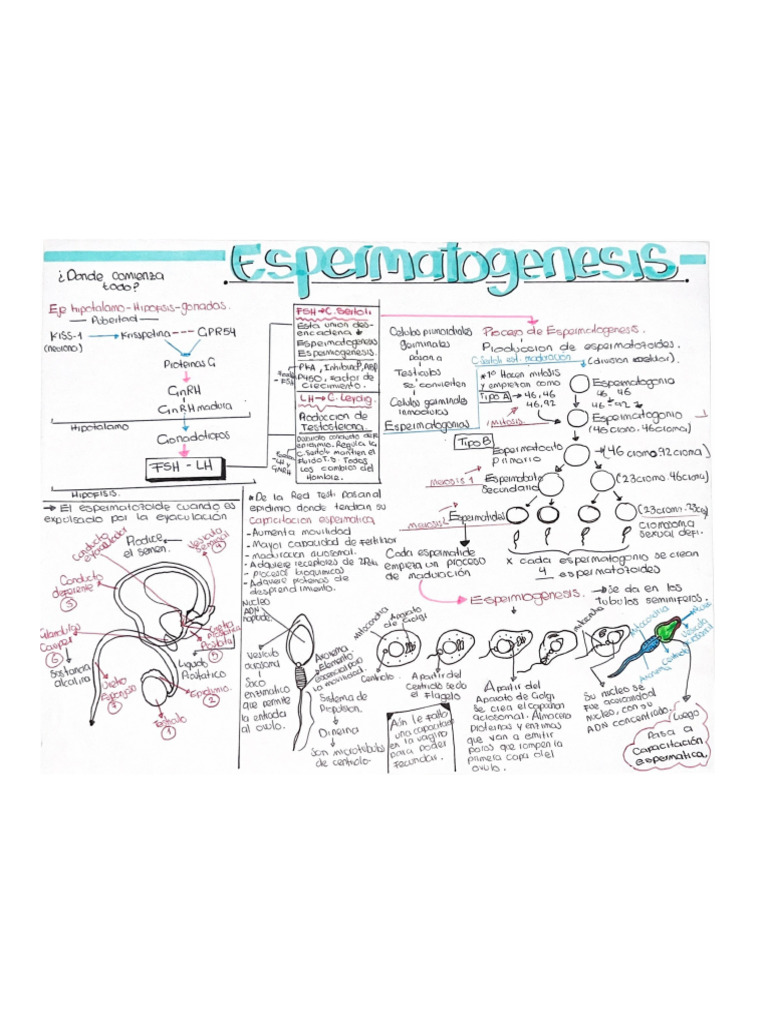 Espermatogenesis
¿Donde comienza
todo?
Eje hipotalamo-Hipofisis-gonadas.
Pubertad
KISS-1
(neurona)
Krisspetina
GPR54
Proteinas G
GnRH
GnRH madura
Hipotalamo
Gonadotofos
FSH - LH
Hipofisis.
FSH→C. Sertoli
Esta union des-
encadena
Espermatogenesis
Espermiogenesis.
PKA, Inhibina, ABP
P450, Factor de
crecimiento.
LH→C. Leydig.
Produccion de
Testosterona.
los cambios del
Hombre.
Celulas primordiales
germinales
pasan a
Testiculos
se convierten
Celulas germinales
inmaduras
Espermatogonias
Proceso de Espermatogenesis.
Producción de espermatozoides.
C. Sertoli est. maduración
(division celular).
*1º Hacen mitosis
y empiezan como
Tipo A → 46,46
46,92
Mitosis
Tipo B
Espermatogonia
46 46
46 92
Espermatogonio
(46 crom. 46 croma)
Espermatocito
primario
(46 cromo. 92 croma)
Meiosis 1
Espermatocito
Secundario
(23 cromo. 46 croma)
Meiosis 2
Espermatides
(23 croms. 23 cro)
cromosoma
sexual def.
Cada espermatide
empieza un proceso
de maduración
x cada espermatogonio se crean
4 espermatozoides
Espermiogenesis.
→ Se da en los
Tubulos seminiferos.
→ El espermatozoide cuando es
expulsado por la eyaculación
Conducto
eyaculador
Produce
el semen.
Vesicula
seminal
4
Conducto
deferente
3
Glandulas
Cowper
6
Sustancia
alcalina
Uretra
Esponjosa
7
Testiculo
1
Epididimo.
2
Liquido
Prostatico
5
* De la Red Test. pasan al
epidimo donde tendran su
Capacitacion espermatica,
- Aumenta movilidad
- Mayor capacidad de fertilizar
- maduracion acrosomal.
- procesos bioquimicos
- Adquiere proteinas de
desprendimiento.
Nucleo
ADN
haploide.
Vesicula
acrosomal
Saco
enzimatico
que permite
la entrada
al ovulo.
Axonema
Elemento
esencial para
la movilidad.
Sistema de
Propulsion.
Dineina
Son microtubulos
de centriolo.
Mitocondria
Aparato
de Golgi
Centriolo.
A partir del
Centriolo se da
el Flagelo
Aún le falta
una capacitacion
en la vagina
para poder
fecundar.
A partir del
Aparato de Golgi
se crea el capuchon
acrosomal. Almacena
proteinas y enzimas
que van a emitir
para que rompen la
primera capa del
ovulo.
Mitocondria
Su nucleo se
fue acercando al
nucleo, con su
ADN concentrado.
Mitocondria
Nucleo
Vesicula
acrosomal
Centriolo
Axonema
Luego
Pasa a
Capacitación
espermatica.